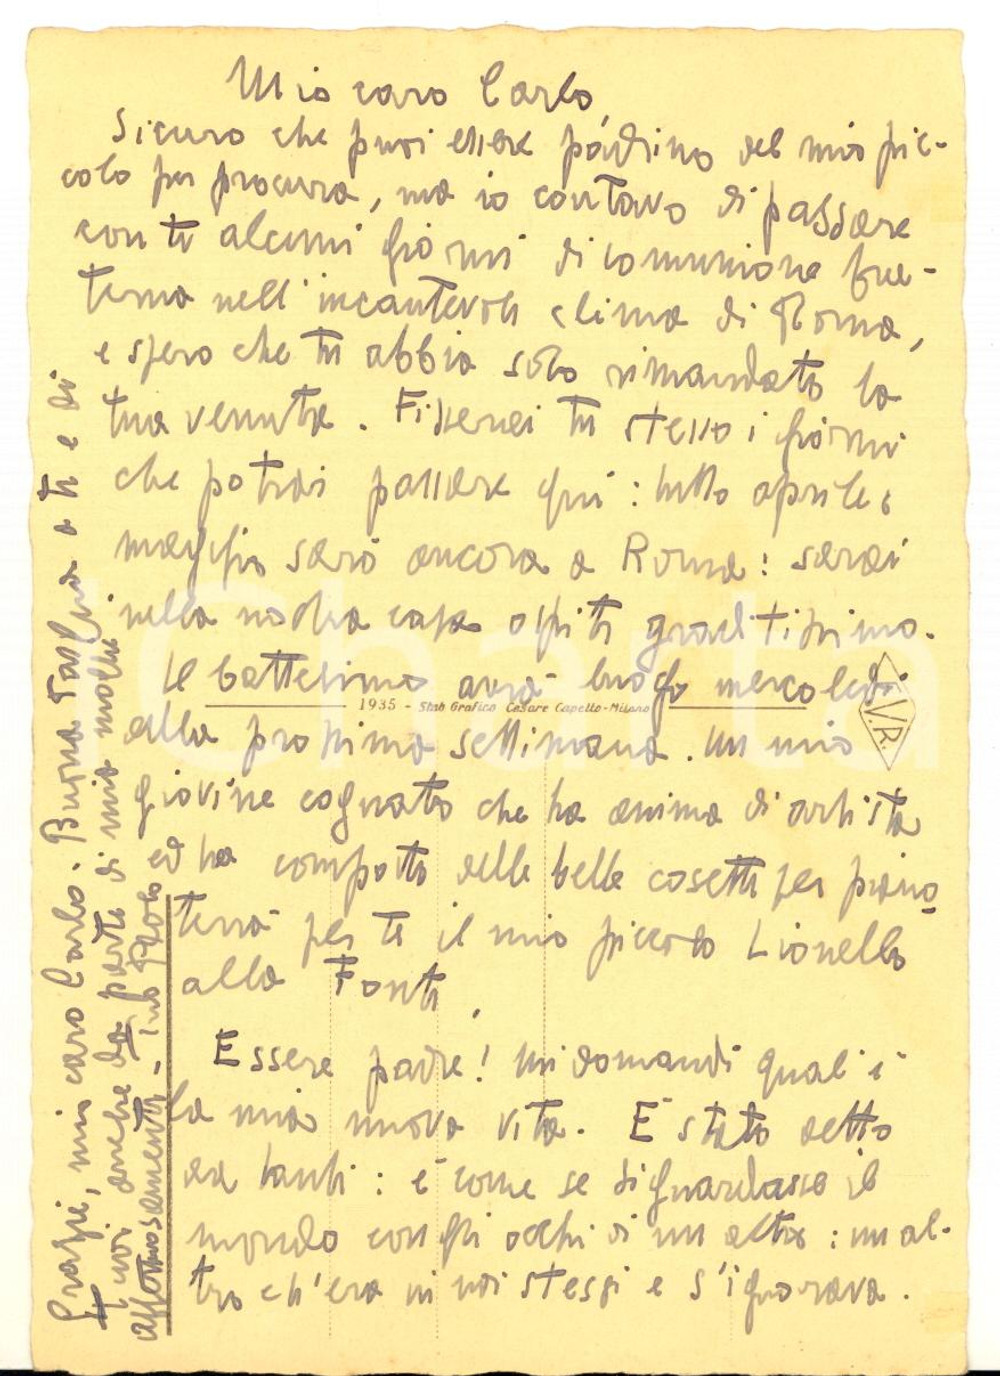 Mio caro Carlo,
Sicuro che puoi essere padrino del mio pic-
colo per procura, ma io contavo di passare
con te alcuni giorni di comunione fra-
terna nell'incantevole clima di Roma,
e spero che tu abbia solo rimandato la
tua venuta. Fisserai tu stesso i giorni
che potrai passare qui: tutto aprile e
maggio sarò ancora a Roma: sarai
nella nostra casa ospite graditissimo.
Il battesimo avrà luogo mercoledì
1935 - Stab Grafico Cesare Capello-Milano
V.R.
della prossima settimana. Un mio
giovine cognato che ha anima di artista
ed ha composto delle belle cosette per piano
terrà per te il mio piccolo Lionello
alla Fonte.
Essere padre! Mi domandi qual è
la mia nuova vita. È stato detto
da tanti: è come se si guardasse il
mondo con gli occhi di un altro: un al-
tro ch'era in noi stessi e s'ignorava.
Grazie, mio caro Carlo. Buona Pasqua a te e di
tuoi anche da parte di mia moglie
affettuosamente, tuo
Charta